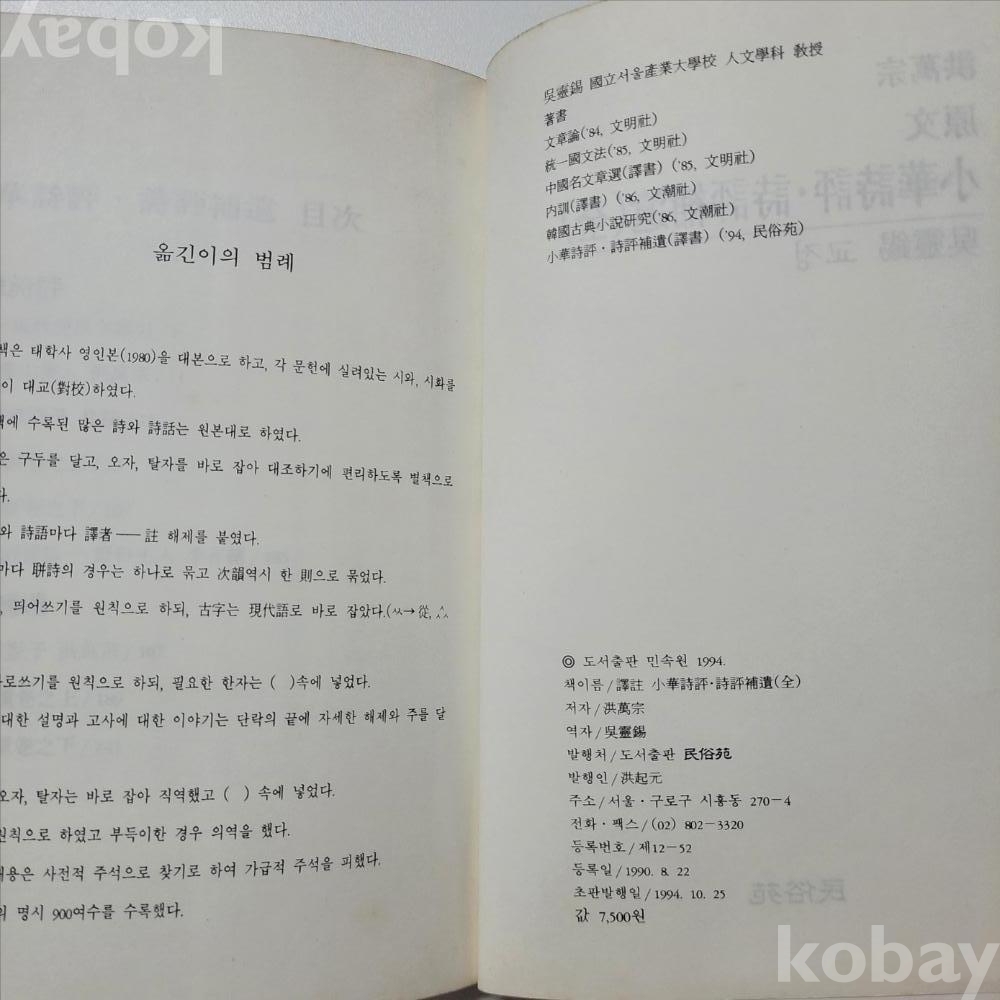 옮긴이의 범례
책은 태학사 영인본(1980)을 대본으로 하고, 각 문헌에 실려있는 시와, 시화를
이 대교(對校)하였다.
책에 수록된 많은 詩와 詩話는 원본대로 하였다.
은 구두를 달고, 오자, 탈자를 바로 잡아 대조하기에 편리하도록 별책으로
다.
와 詩語마다 譯者――註 해제를 붙였다.
마다 聯詩의 경우는 하나로 묶고 次韻역시 한 則으로 묶었다.
, 띄어쓰기를 원칙으로 하되, 古字는 現代語로 바로 잡았다.(从→從,
로쓰기를 원칙으로 하되, 필요한 한자는 ( )속에 넣었다.
대한 설명과 고사에 대한 이야기는 단락의 끝에 자세한 해제와 주를 달
오자, 탈자는 바로 잡아 직역했고 ( ) 속에 넣었다.
원칙으로 하였고 부득이한 경우 의역을 했다.
내용은 사전적 주석으로 찾기로 하여 가급적 주석을 피했다.
의 명시 900여수를 수록했다.
吳靈錫 國立서울產業大學校 人文學科 敎授
著書
文章論('84, 文明社)
統一國文法('85, 文明社)
中國名文章選(譯書) ('85, 文明社)
內訓(譯書) ('86, 文潮社)
韓國古典小說硏究('86, 文潮社)
小華詩評·詩評補遺(譯書) ('94, 民俗苑)
◎ 도서출판 민속원 1994.
책이름/譯註 小華詩評·詩評補遺(全)
저자/洪萬宗
역자/吳靈錫
발행처/도서출판 民俗苑
발행인/洪起元
주소/서울·구로구 시흥동 270-4
전화·팩스/(02) 802-3320
등록번호/제12-52
등록일/1990. 8. 22
초판발행일/1994. 10. 25
값 7,500원
kobay
kobay